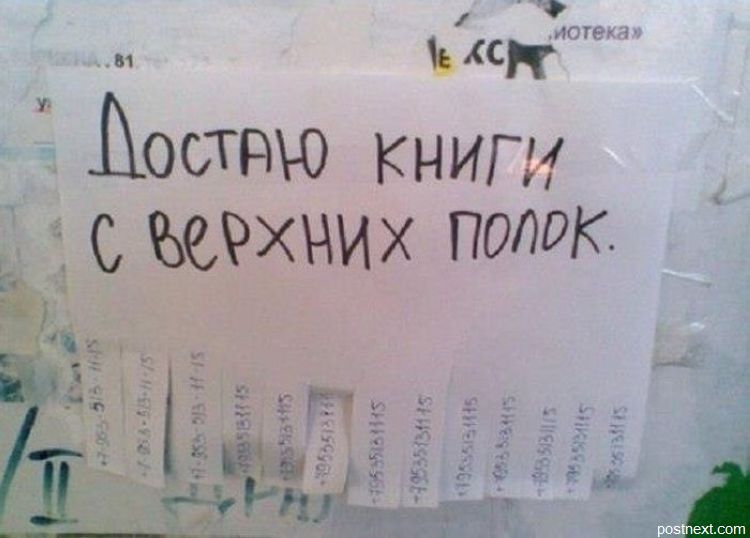 иотека»
. 81
Е КС
Достаю книги
с верхних полок.
+7-953-513-11-15
+7-953-513-11-15
+7-953-513-11-15
+79535131115
+79535131115
+79535131115
+79535131115
+79535131115
+79535131115
+79535131115
+79535131115
+79535131115
+79535131115
II
postnext.com